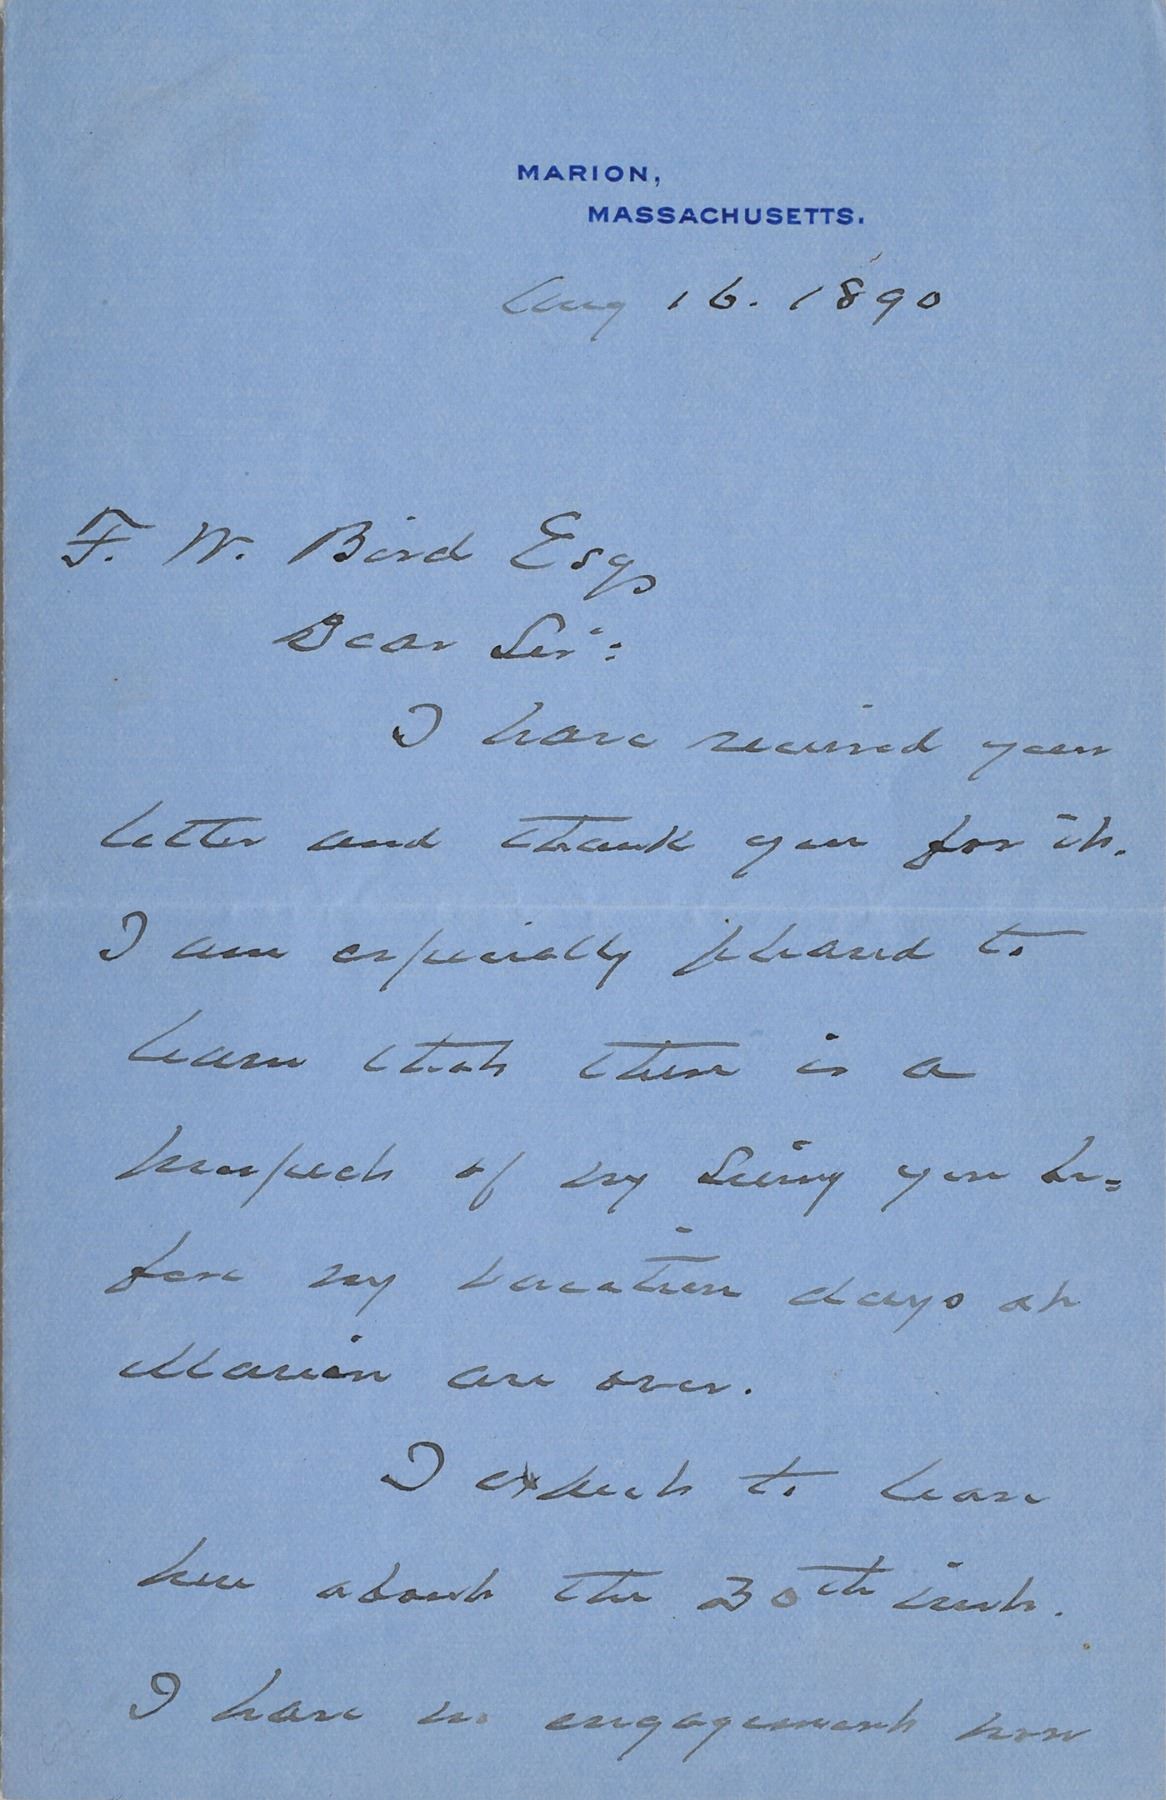 MARION,
MASSACHUSETTS.
Aug 16. 1890
F. W. Bird Esq
Dear Sir:
I have received your
letter and thank you for it.
I am especially pleased to
learn that there is a
prospect of my seeing you be=
fore my vacation days at
Marion are over.
I expect to leave
here about the 30th inst.
I have no engagement now